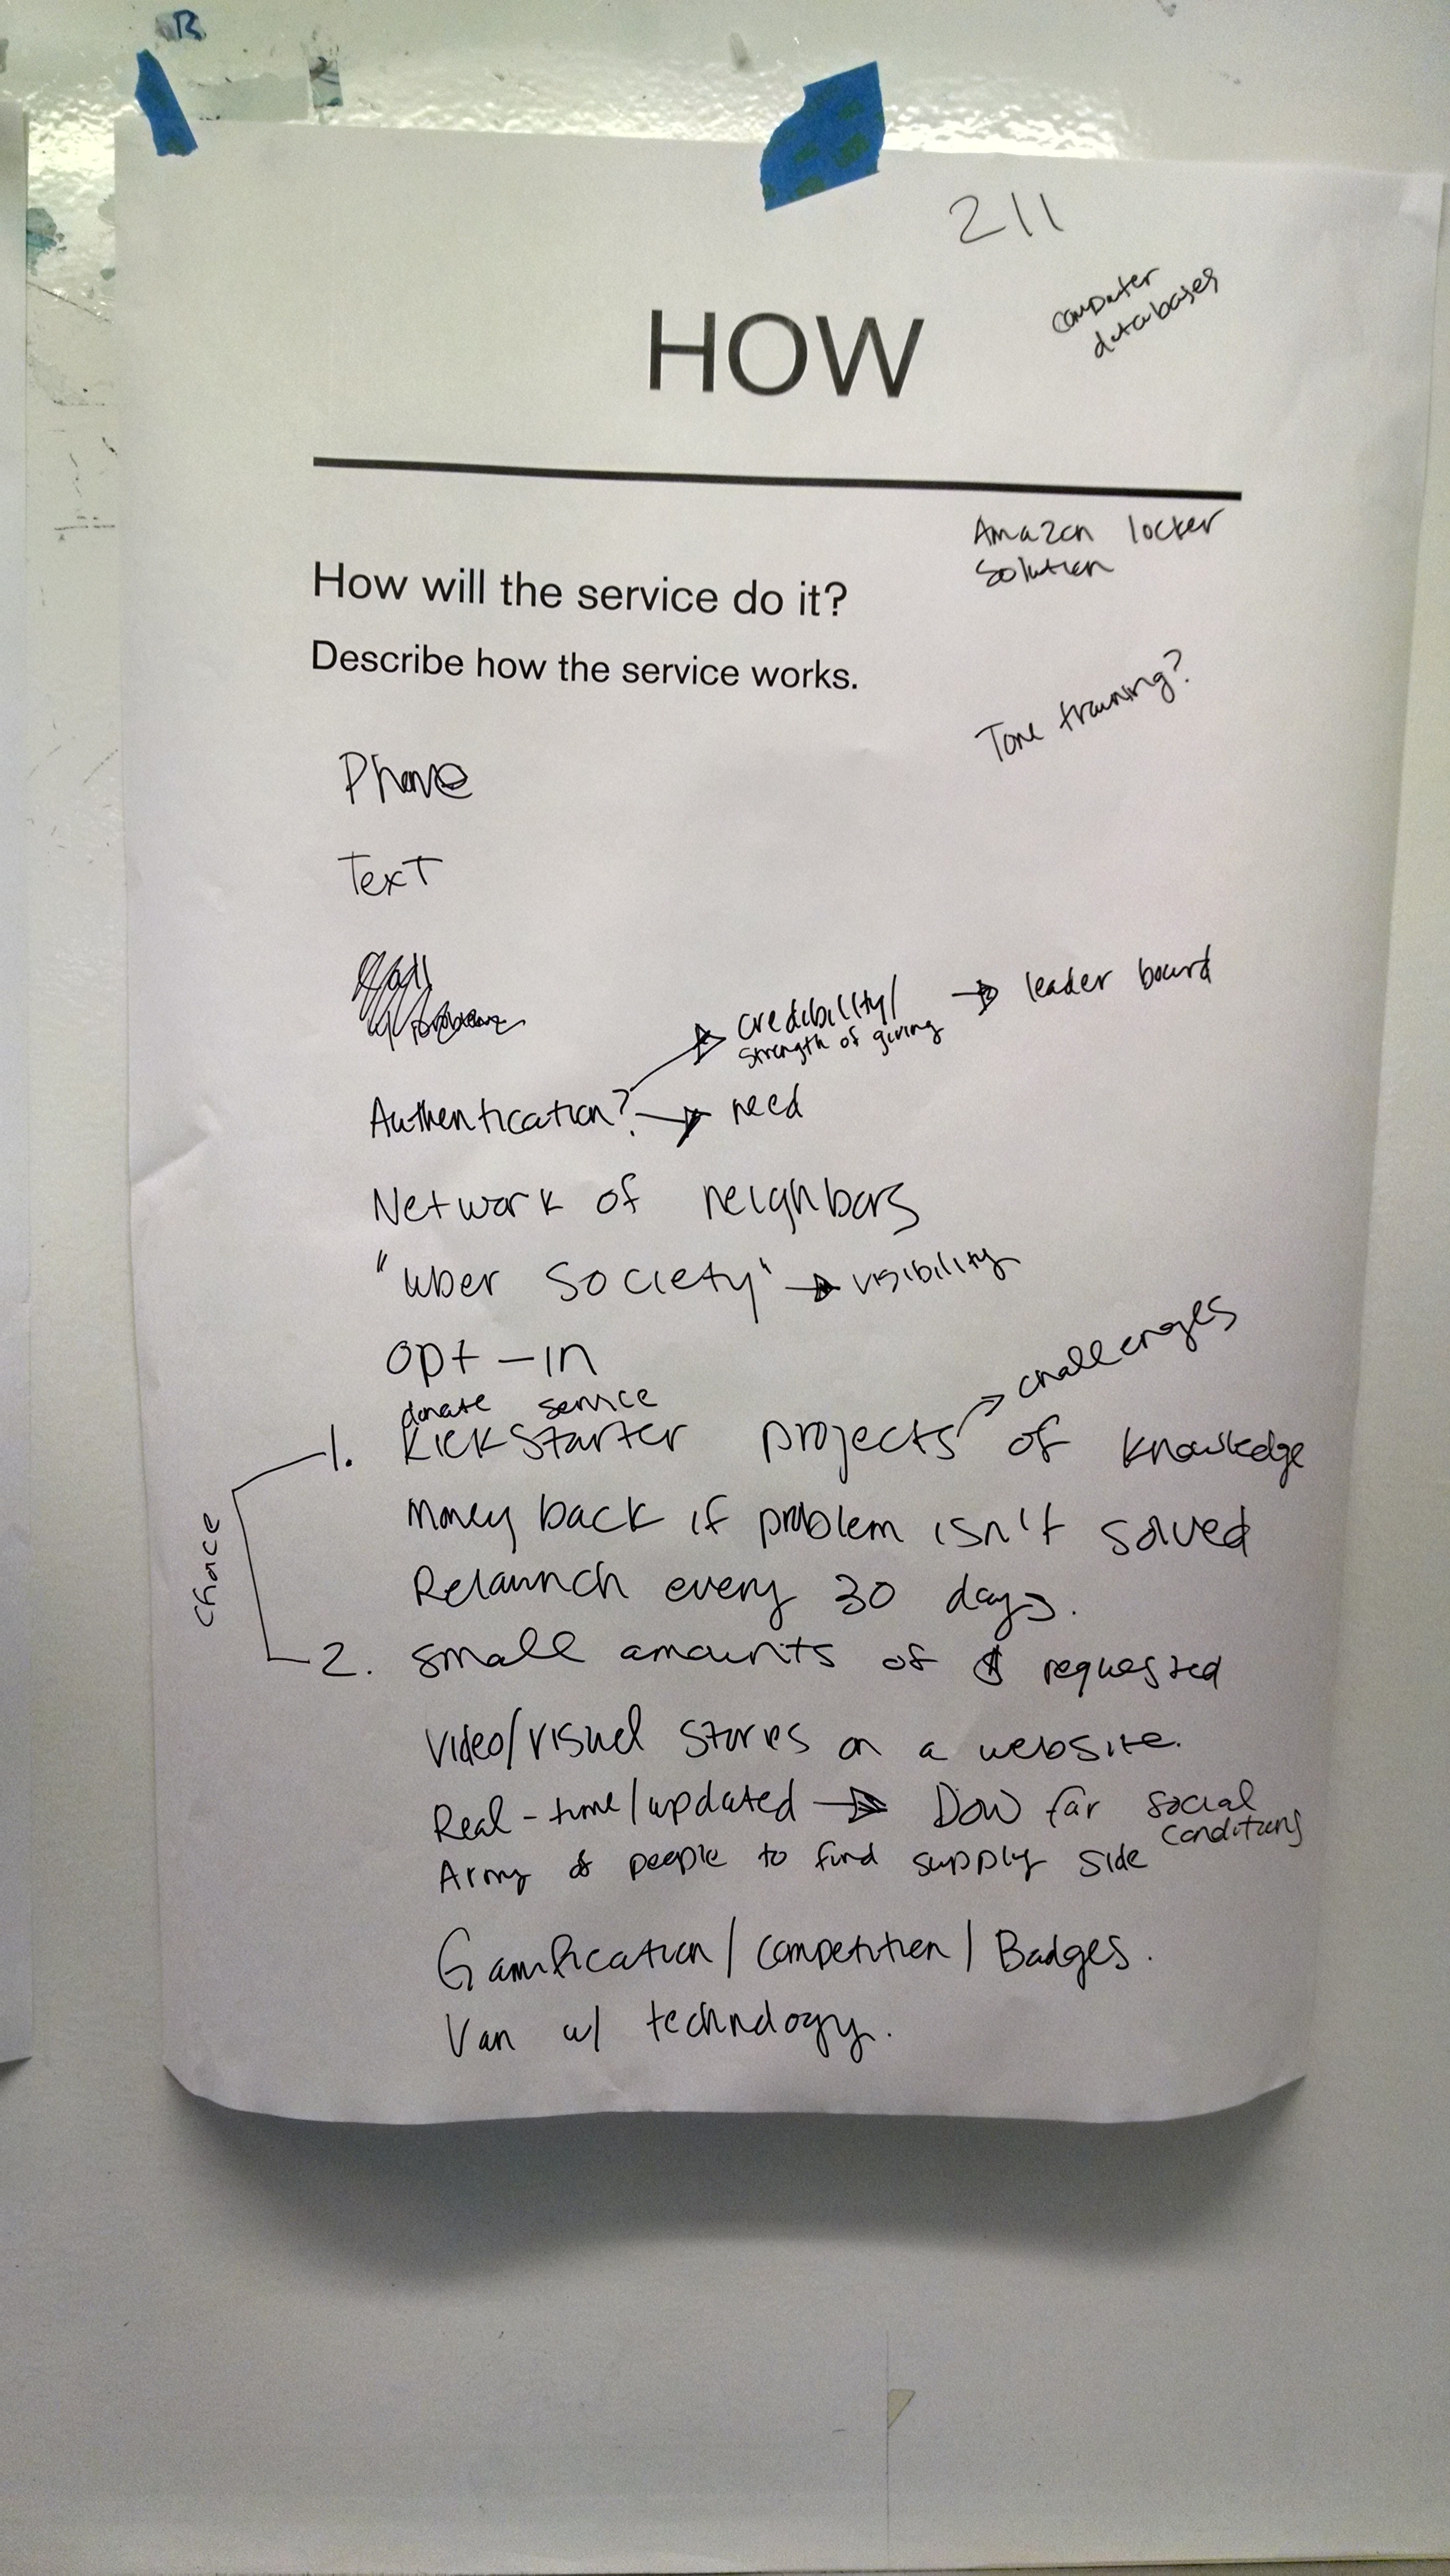 B
211
computer
databases
HOW
Amazon locker
solution
How will the service do it?
Describe how the service works.
Tone training?
Phone
Text
credibility/ → leader board
strength of giving
Authentication? → need
Network of neighbors
"Uber Society" → visibility
opt-in
challenges
donate service
1. Kickstarter projects of knowledge
Money back if problem isn't solved
choice
Relaunch every 30 days.
2. small amounts of $ requested
Video/visual stories on a website.
Real-time/updated → Dow for social
conditions
Army of people to find supply side
Gamification/competition/Badges.
Van w/ technology.